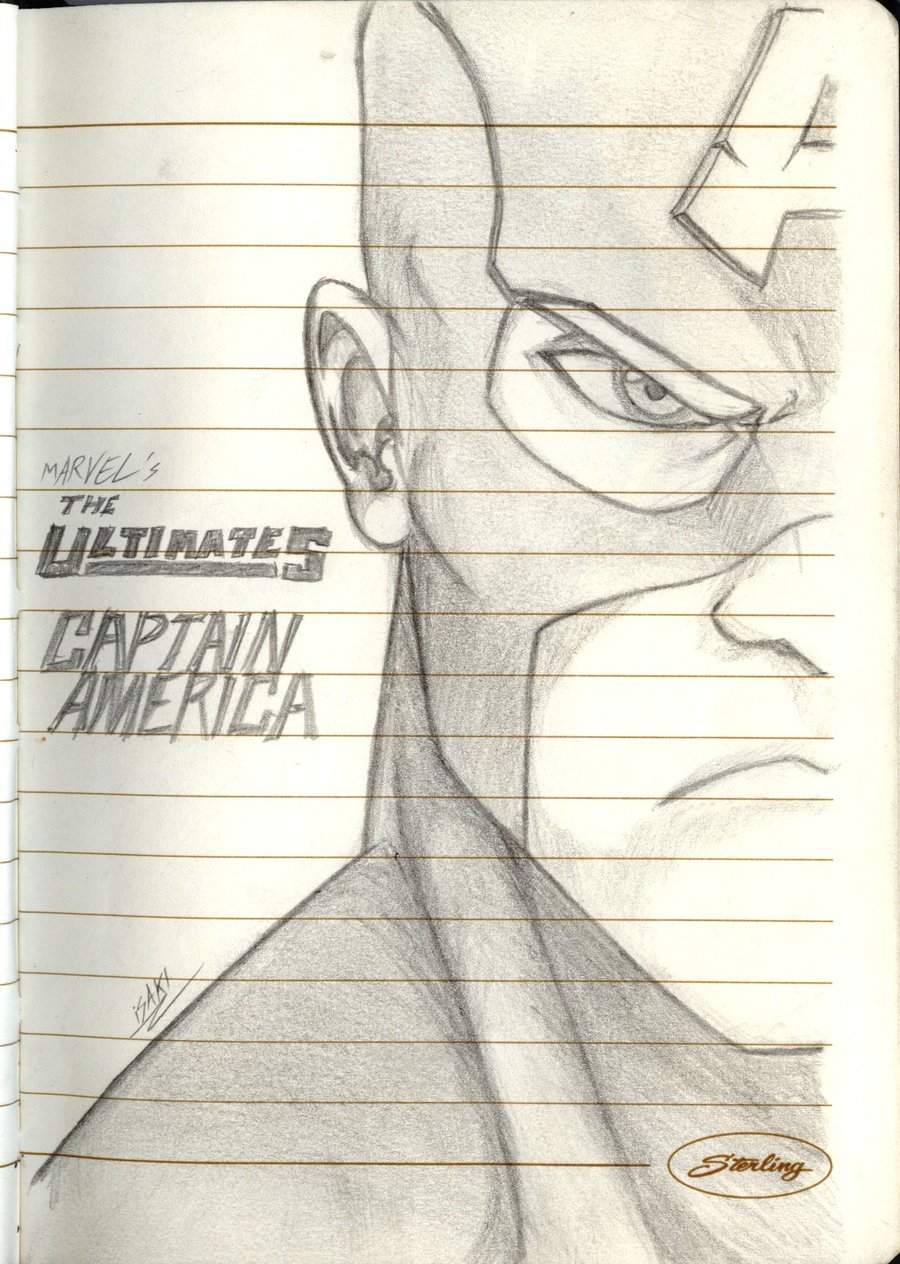 MARVEL's
THE
ULTIMATES
CAPTAIN
AMERICA
iSAKI
Sterling
A